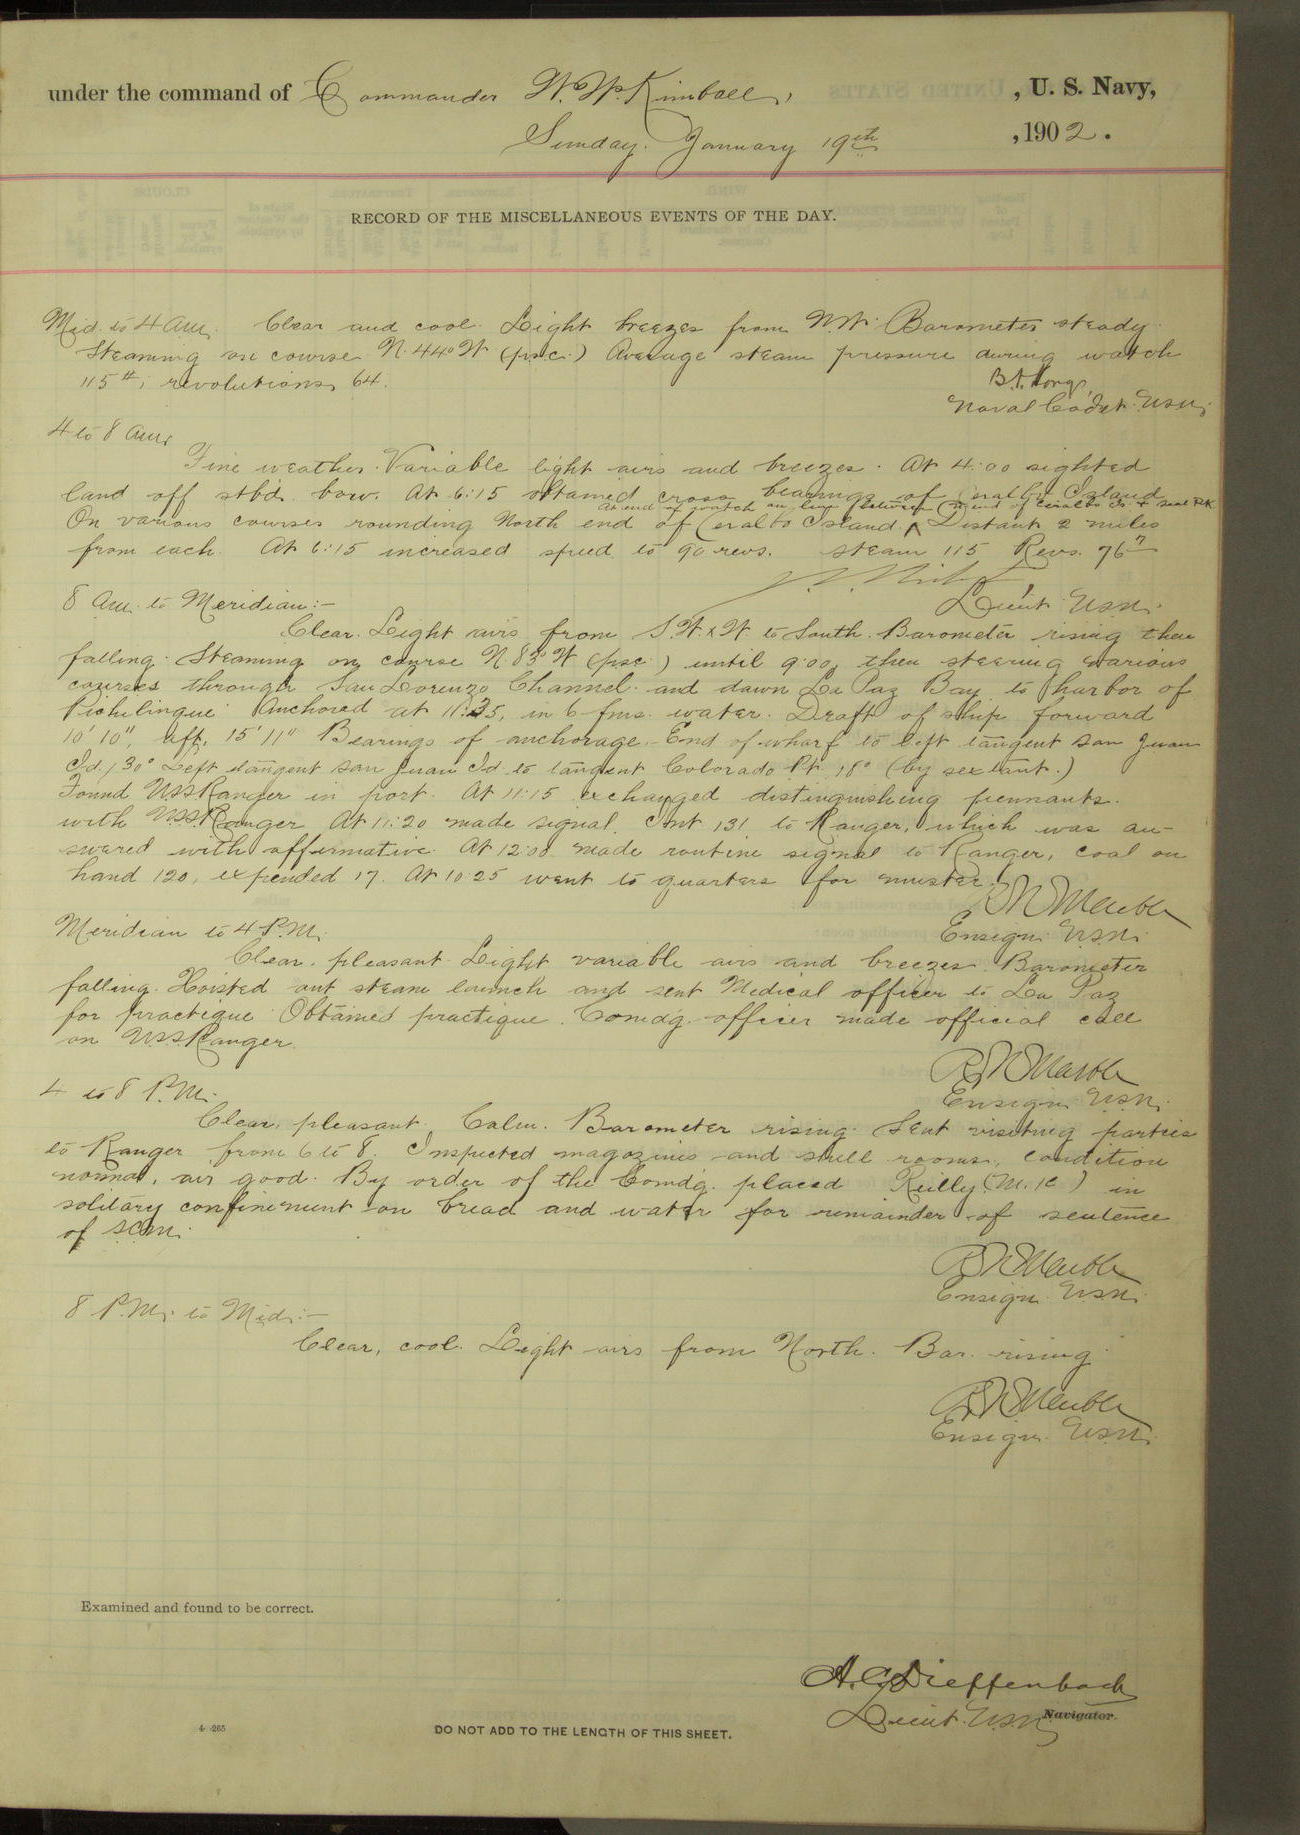 under the command of Commander W. W. Kimball, , U. S. Navy,
Sunday. January 19th , 1902.
RECORD OF THE MISCELLANEOUS EVENTS OF THE DAY.
Mid. to 4 am. Clear and cool. Light breezes from N.W. Barometer steady.
Steaming on course N. 44° W (p.s.c.) Average steam pressure during watch
115#, revolutions 64.
Naval Cadet. U.S.N.
4 to 8 am.
Fine weather. Variable light airs and breezes. At 4:00 sighted
land off stbd. bow. At 6:15 obtained cross bearings of Ceralbo Island
At end of watch on line between N. end of Ceralbo Is. & Seal Rk.
On various courses rounding North end of Ceralbo Island. ^ Distant 2 miles
from each. At 6:15 increased speed to 90 revs. Steam 115 Revs. 76
8 am. to Meridian:-
Lieut. U.S.N.
Clear. Light airs from S W x W. to South. Barometer rising then
falling. Steaming on course N. 83° W (psc.) until 9:00, then steering various
courses through San Lorenzo Channel and down La Paz Bay to harbor of
Pichilingue. Anchored at 11:35, in 6 fms. water. Draft of ship forward
10' 10", aft. 15' 11" Bearings of anchorage. End of wharf to left tangent San Juan
Id. 30° Left tangent San Juan Id. to tangent Colorado Pt. 18° (by sextant.)
Found USS Ranger in port. At 11:15 exchanged distinguishing pennants.
with U.S.S. Ranger. At 11:20 made signal. Int 131 to Ranger, which was an-
swered with affirmative. At 12:00 made routine signal to Ranger, coal on
hand 120, expended 17. At 10 25 went to quarters for muster.
R N Marble
Meridian to 4 P.M.
Ensign U.S.N.
Clear, pleasant. Light variable airs and breezes. Barometer
falling. Hoisted out steam launch and sent Medical officer to La Paz
for practique. Obtained practique. Comdg. officer made official call
on U.S.S. Ranger.
R N Marble
4 to 8 P.M.
Ensign U.S.N.
Clear, pleasant. Calm. Barometer rising. Sent visiting parties
to Ranger from 6 to 8. Inspected magazines and shell rooms, condition
normal, air good. By order of the Comdg. placed Reilly (M. 1c) in
solitary confinement on bread and water for remainder of sentence
of SCM.
R N Marble
Ensign U.S.N.
8 P.M. to Mid:-
Clear, cool. Light airs from North. Bar. rising.
R N Marble
Ensign U.S.N.
Examined and found to be correct.
A. C. Dieffenbach
Lieut. U.S.N. Navigator.
4-265
DO NOT ADD TO THE LENGTH OF THIS SHEET.